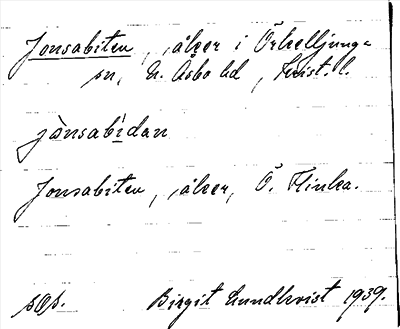 Jonsabiten, åker i Örkelljunga
sn, N. Åsbo hd, Krist. l.
jànsabìdan
Jonsabiten, åker, Ö. Flinka.
sOs. Birgit Lundkvist 1939.